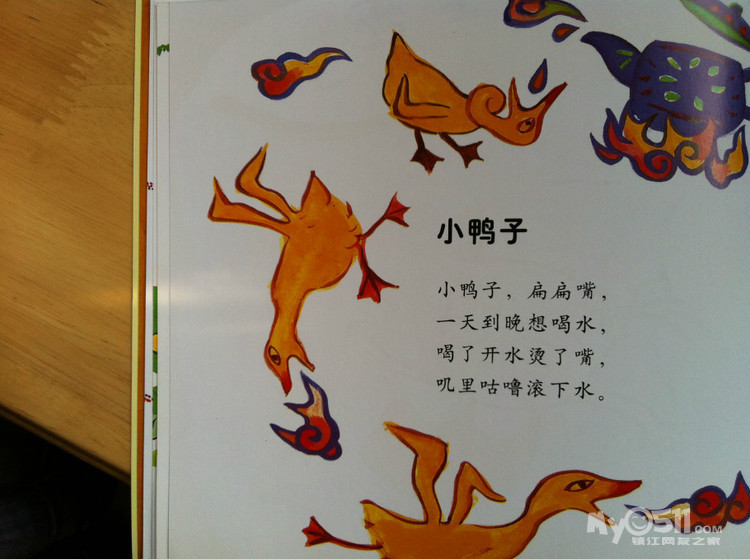 小鸭子
小鸭子，扁扁嘴，
一天到晚想喝水，
喝了开水烫了嘴，
叽里咕噜滚下水。
My0511.com
镇江网友之家